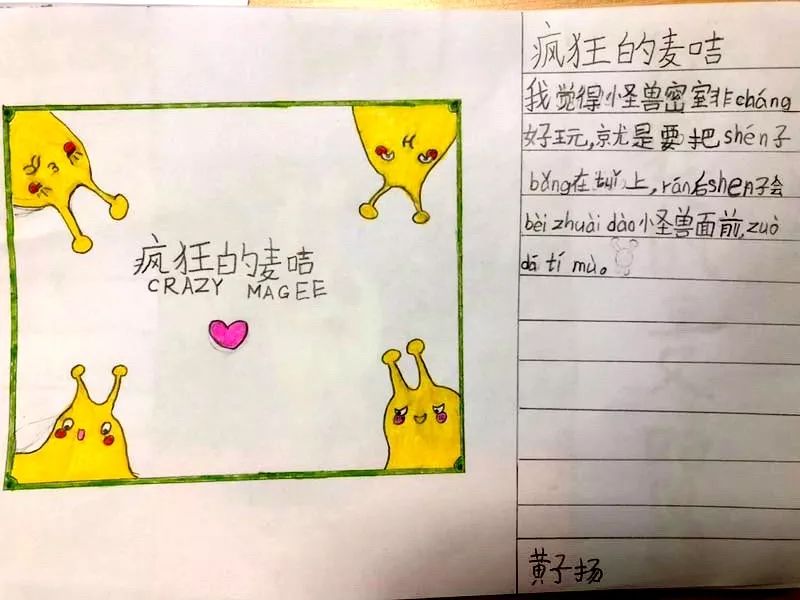 疯狂的麦咭
CRAZY MAGEE
疯狂的麦咭
我觉得小怪兽密室非cháng
好玩,就是要把shén子
bǎng在tuǐ上,rán后shen子会
bèi zhuài dào小怪兽面前,zuò
dā tí mù。
黄子扬